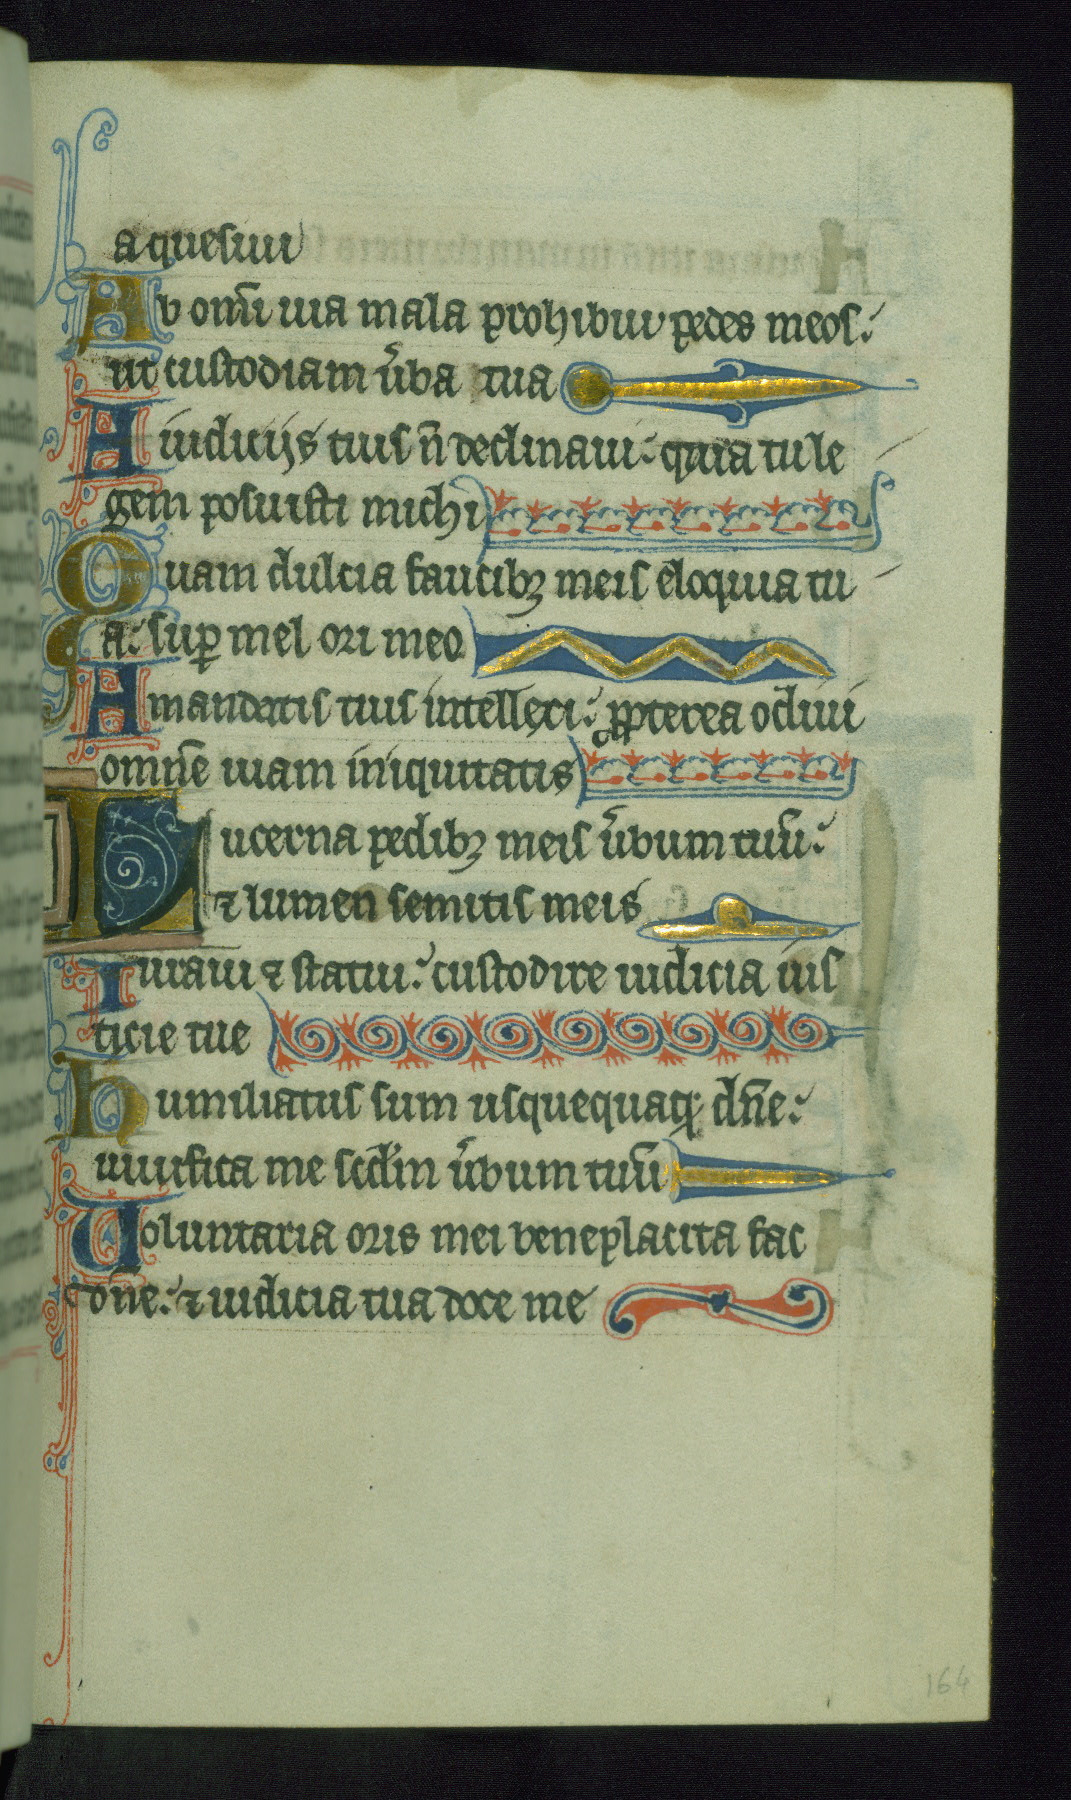 a quesiui
Ab omĩ uia mala prohibui pedes meos.
ut custodiam ũba tua
A iudicijs tuis ñ declinaui. quia tu le
gem posuisti michi
Quam dulcia faucibꝫ meis eloquia tu
a. suꝑ mel ori meo
A mandatis tuis intellexi. ꝓpterea odiui
omñe uiam iniquitatis
Lucerna pedibꝫ meis ũbum tuũ.
⁊ lumen semitis meis
Iuraui ⁊ statui. custodire iudicia ius
ticie tue
Humiliatus sum usquequaqꝫ dñe.
uiuifica me scd̃m ũbum tuũ
Uoluntaria oris mei beneplacita fac
dñe. ⁊ iudicia tua doce me
164